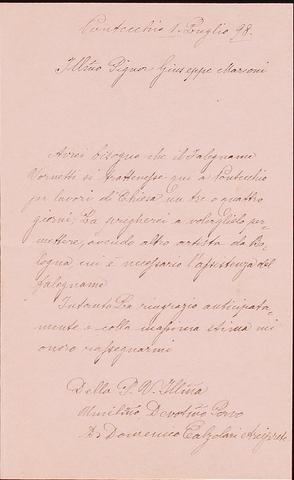 Pontecchio 1. Luglio 98.
Illmo Signor Giuseppe Marconi
Avrei bisogno che il falegname
Vornetti si trattenesse qui a Pontecchio
per lavori di Chiesa un tre o quattro
giorni; La pregherei a volerglielo per=
mettere, avendo altro artista da Bo=
logna, cui è necessario l'assistenza del
falegname
Intanto La ringrazio anticipata=
mente e colla massima stima mi
onoro rassegnarmi
Della S. V. Illma
Umilmo Devotmo Servo
D. Domenico Calzolari Arciprete